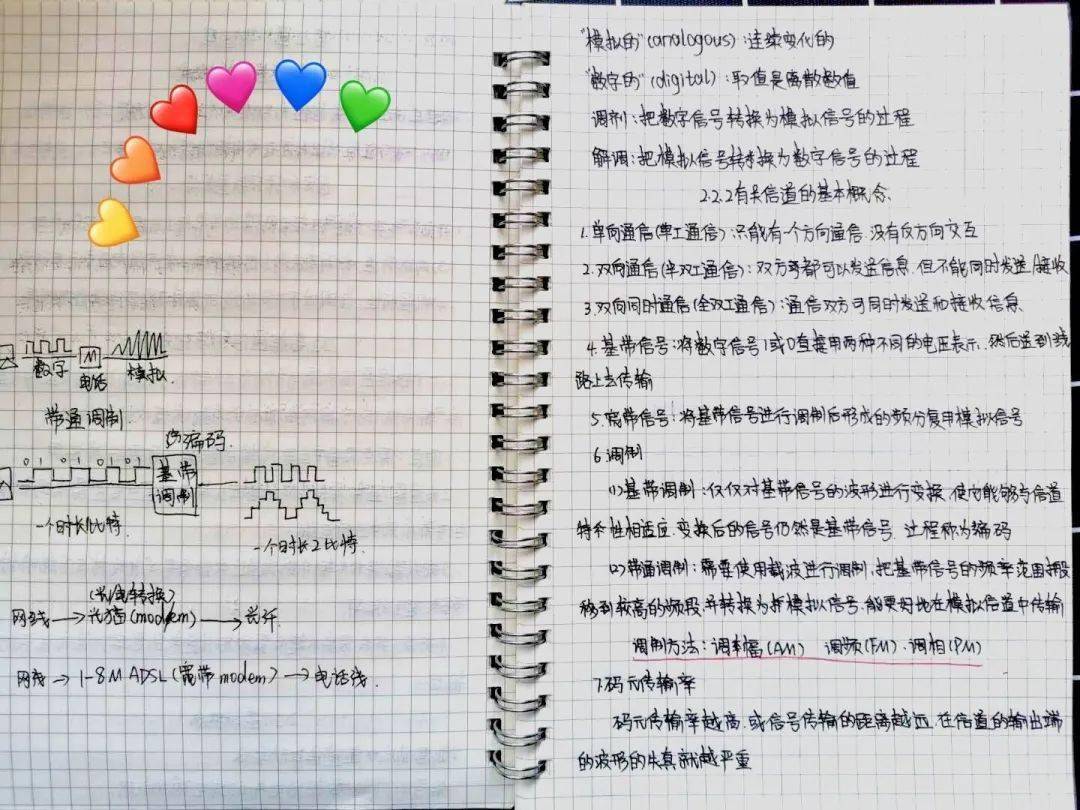 数字
M
电话
模拟
带通调制
编码
0 1 0 1 0 1 0 1
基带
调制
一个时长1比特
一个时长2比特
(光电转换)
网线→光猫(modem)→光纤
网线→1-8M ADSL(宽带modem)→电话线
"模拟的"(analogous):连续变化的
"数字的"(digital):取值是离散数值
调制:把数字信号转换为模拟信号的过程
解调:把模拟信号转换为数字信号的过程
2.2.2有关信道的基本概念
1.单向通信(单工通信):只能有一个方向通信.没有反方向交互
2.双向通信(半双工通信):双方都可以发送信息.但不能同时发送/接收
3.双向同时通信(全双工通信):通信双方可同时发送和接收信息
4.基带信号:将数字信号1或0直接用两种不同的电压表示.然后送到线
路上去传输
5.宽带信号:将基带信号进行调制后形成的频分复用模拟信号
6.调制
(1)基带调制:仅仅对基带信号的波形进行变换.使它能够与信道
特性相适应.变换后的信号仍然是基带信号.过程称为编码
(2)带通调制:需要使用载波进行调制.把基带信号的频率范围搬
移到较高的频段.并转换为模拟信号.能更好地在模拟信道中传输
调制方法:调幅(AM) 调频(FM).调相(PM)
7.码元传输率
码元传输率越高.或信号传输的距离越远.在信道的输出端
的波形的失真就越严重